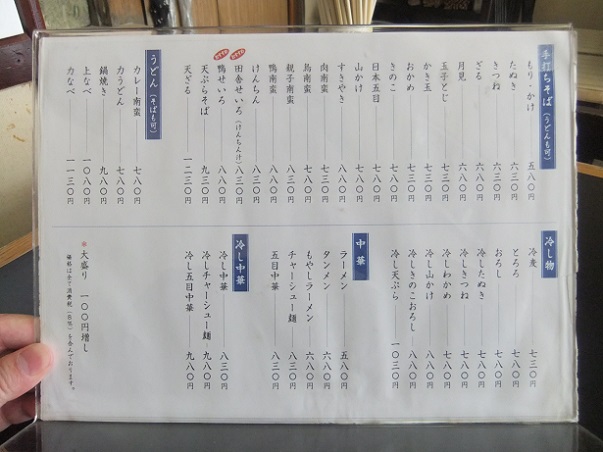 手打ちそば（うどんも可）
もり・かけ 五八〇円
たぬき 六三〇円
きつね 六三〇円
ざる 六八〇円
月見 六八〇円
玉子とじ 七三〇円
かき玉 七三〇円
おかめ 七三〇円
きのこ 七八〇円
日本五目 七八〇円
山かけ 七八〇円
すきやき 八八〇円
肉南蛮 七三〇円
鳥南蛮 七八〇円
親子南蛮 八三〇円
鴨南蛮 八八〇円
けんちん 八三〇円
田舎せいろ（けんちん汁） 八三〇円
鴨せいろ 八八〇円
天ぷらそば 九三〇円
天ざる 一二三〇円
うどん（そばも可）
カレー南蛮 七八〇円
力うどん 七八〇円
鍋焼き 九八〇円
上なべ 一〇八〇円
力なべ 一一三〇円
冷し物
冷麦 七三〇円
とろろ 七八〇円
おろし 七八〇円
冷したぬき 七八〇円
冷しきつね 七八〇円
冷しわかめ 七八〇円
冷し山かけ 八八〇円
冷しきのこおろし 八八〇円
冷し天ぷら 一〇三〇円
中華
ラーメン 五八〇円
タンメン 六八〇円
もやしラーメン 六八〇円
チャーシュー麺 八三〇円
五目中華 八三〇円
冷し中華
冷し中華 八三〇円
冷しチャーシュー麺 九八〇円
冷し五目中華 九八〇円
＊大盛り 一〇〇円増し
価格は全て消費税（各項）を含んでおります。